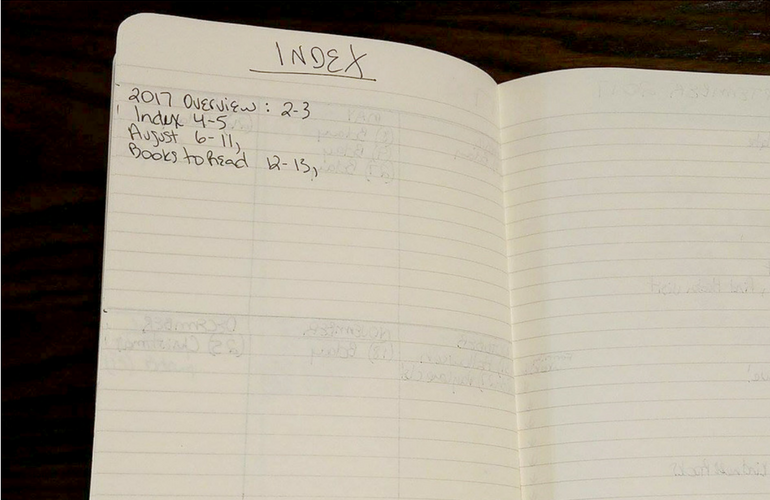 INDEX
2017 Overview: 2-3
Index 4-5
August 6-11,
Books to Read 12-13,